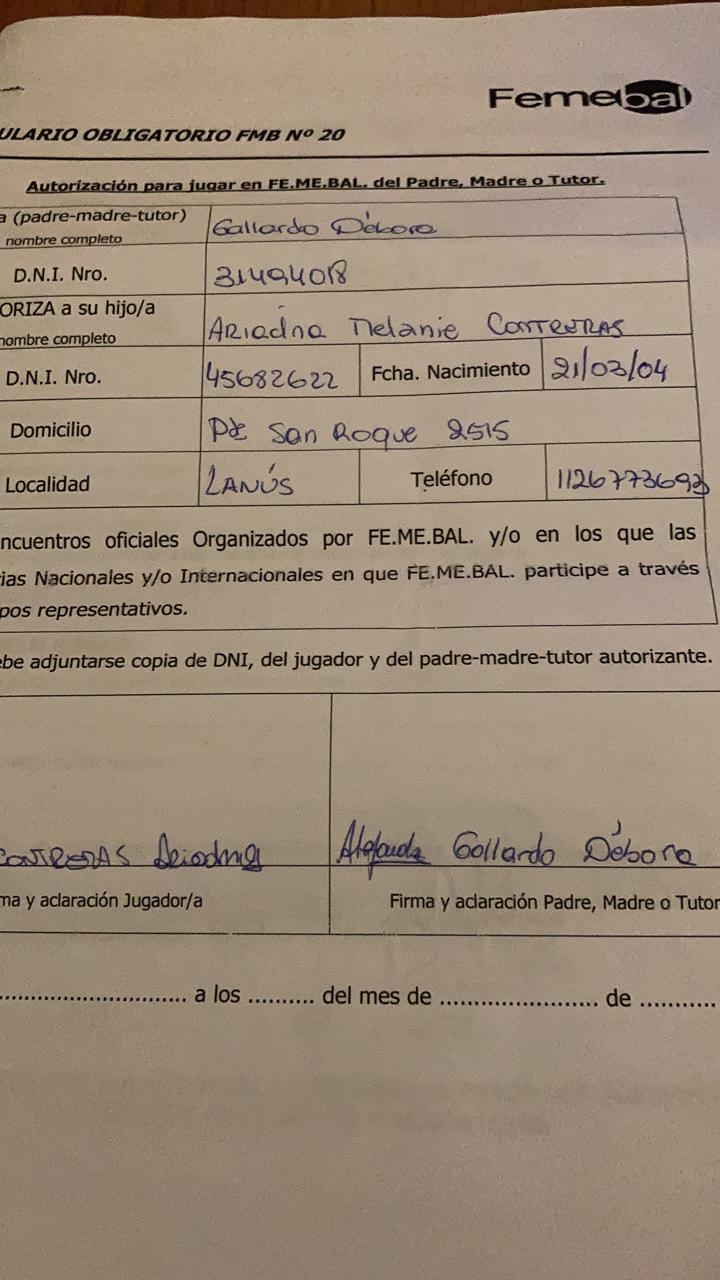 Femebal
ULARIO OBLIGATORIO FMB Nº 20
Autorización para jugar en FE.ME.BAL. del Padre, Madre o Tutor.
a (padre-madre-tutor) Gallardo Débora
nombre completo
D.N.I. Nro. 31494018
ORIZA a su hijo/a
nombre completo Ariadna Melanie Contreras
D.N.I. Nro. 45682622 Fcha. Nacimiento 21/03/04
Domicilio Pje San Roque 2515
Localidad LANÚS Teléfono 1126773693
ncuentros oficiales Organizados por FE.ME.BAL. y/o en los que las
ias Nacionales y/o Internacionales en que FE.ME.BAL. participe a través
pos representativos.
ebe adjuntarse copia de DNI, del jugador y del padre-madre-tutor autorizante.
CONTRERAS Ariadna Gallardo Débora
ma y aclaración Jugador/a Firma y aclaración Padre, Madre o Tutor
............................ a los .......... del mes de ........................ de ...........